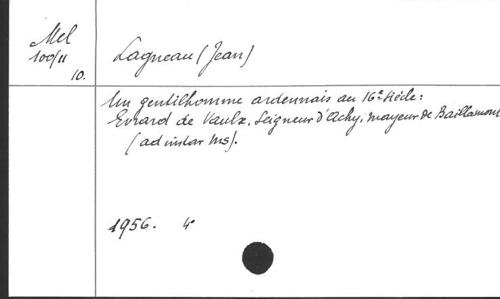 Mel
100/11
10.
Lagneau (Jean)
Un gentilhomme ardennais au 16e siècle:
Evrard de Vaulx, Seigneur d'Achy, mayeur de Baillamont
(ad instar ms).
1956. 4°